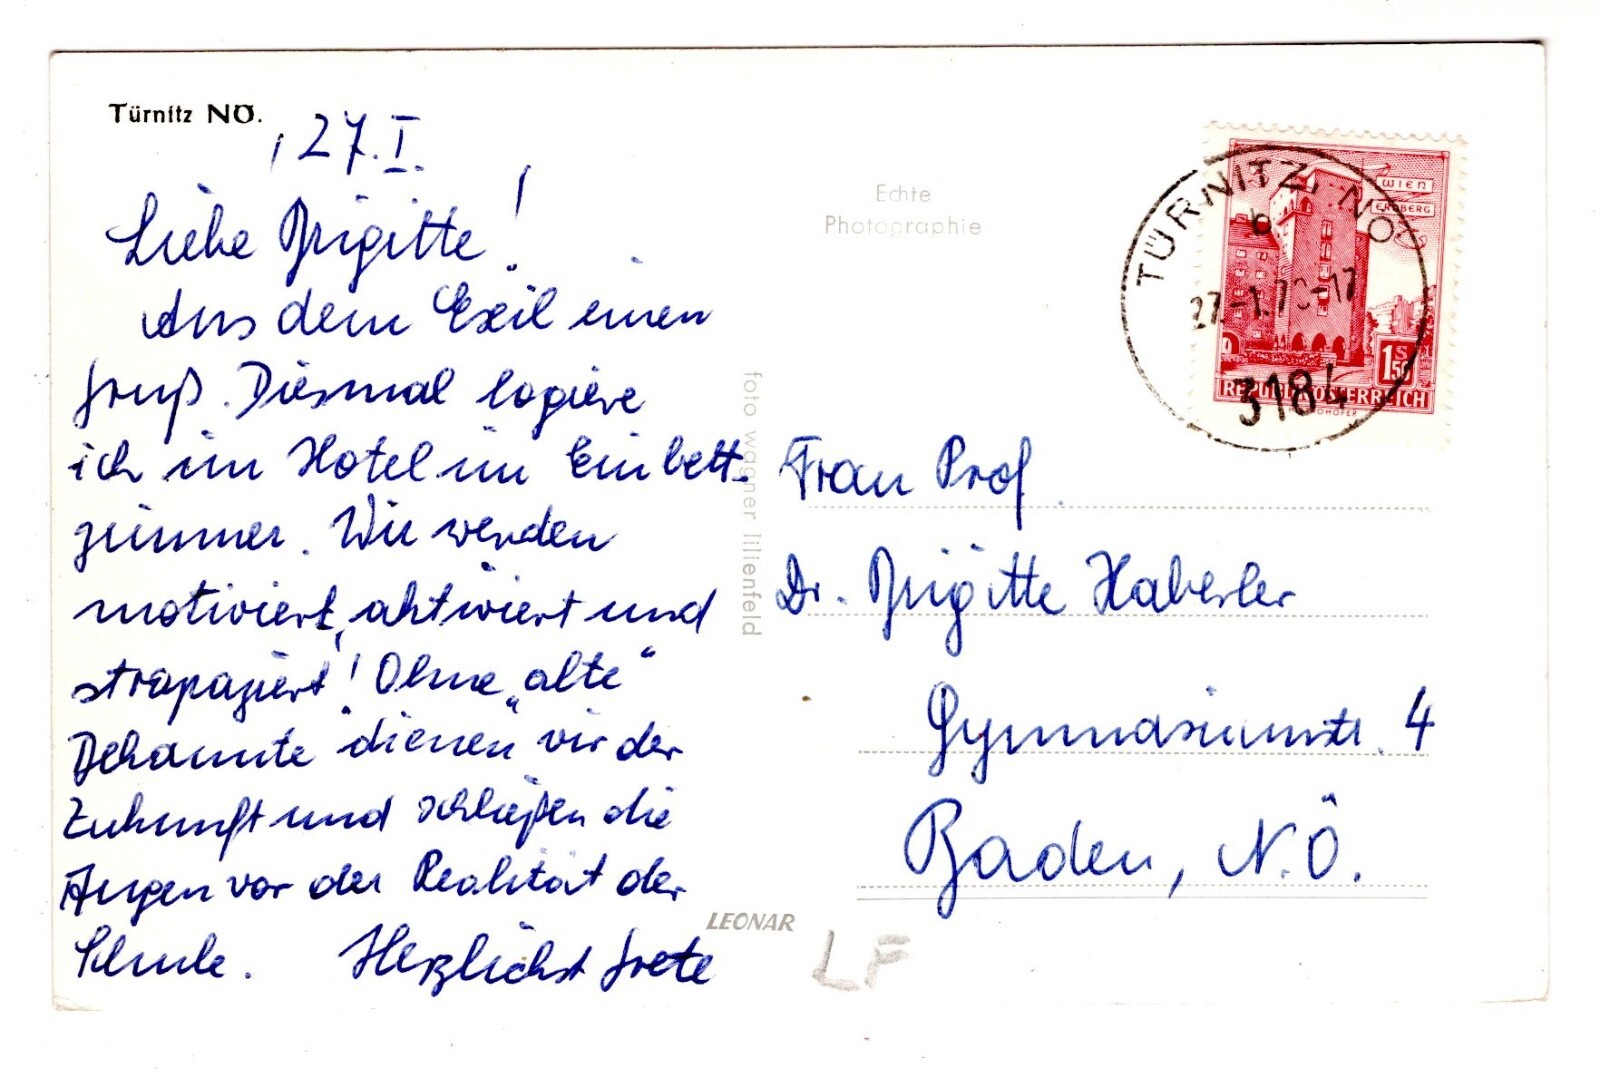 Türnitz NÖ.
, 27. I.
Liebe Brigitte!
Aus dem Exil einen
Gruß. Diesmal logiere
ich im Hotel im Einbett-
zimmer. Wir werden
motiviert, aktiviert und
strapaziert! Ohne „alte“
Bekannte "dienen" wir der
Zukunft und schließen die
Augen vor der Realität der
Schule. Herzlichst Grete
Echte
Photographie
foto wagner lilienfeld
LEONAR
LF
TÜRNITZ, NÖ
b
27.-1.70-17
3184
WIEN
ERDBERG
1 S 50
REPUBLIK ÖSTERREICH
Frau Prof.
Dr. Brigitte Haberler
Gymnasiumstr. 4
Baden, N.Ö.